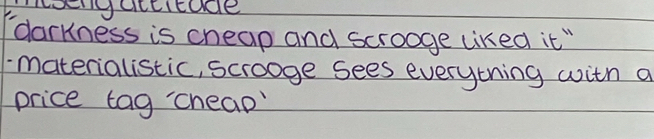 attitude
"darkness is cheap and scrooge liked it"
-materialistic, scrooge sees everything with a
price tag 'cheap'